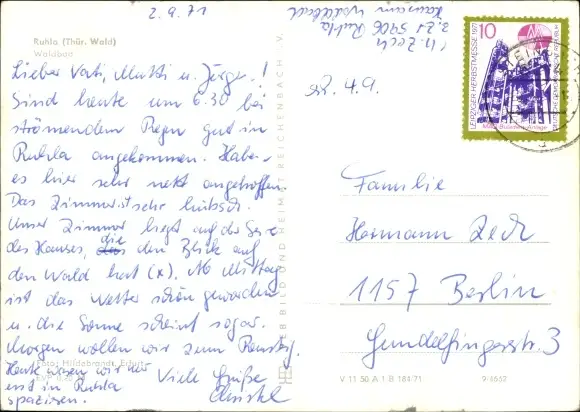 2.9.71
U. Zech
z. Zt. 5906 Ruhla
Haus am Waldbad
Ruhla (Thür. Wald)
Waldbad
Lieber Vati, Mutti u. Jörge!
Sind heute um 6.30 bei
strömendem Regen gut in
Ruhla angekommen. Habe-
es hier sehr nett angetroffen.
Das Zimmer ist sehr hübsch.
Unser Zimmer liegt auf der Seite
des Hauses, die den Blick auf
den Wald hat (x). Ab Mittag
ist das Wetter schön geworden
u. die Sonne scheint sogar.
Morgen wollen wir zum Rennst.
Heute waren wir nur
erst in Ruhla
spazieren.
Viele Grüße
Christel
Foto: Hildebrandt, Erfurt
BILD UND HEIMAT REICHENBACH
erh. 4.9.
10
LEIPZIGER HERBSTMESSE 1971
DEUTSCHE DEMOKRATISCHE REPUBLIK
Familie
Hermann Zech
1157 Berlin
Gundelfingerstr. 3
V 11 50 A 1 B 184/71